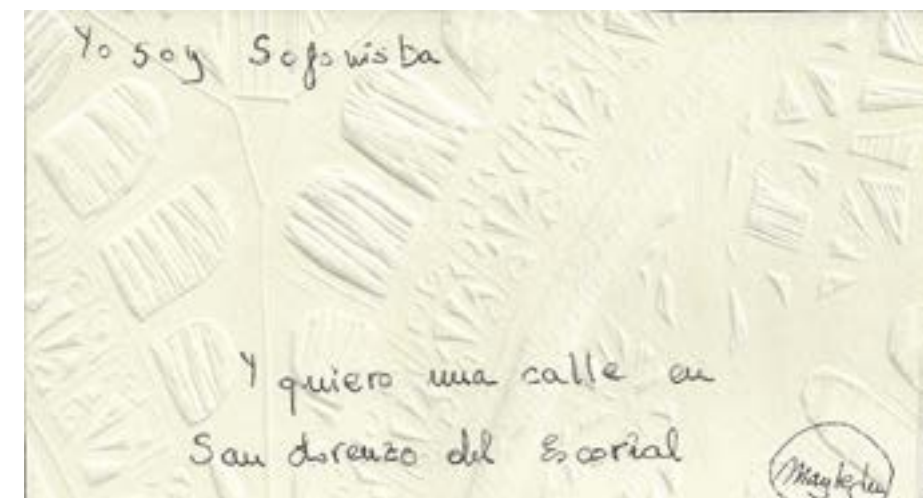 Yo soy Sofonisba
Y quiero una calle en
San Lorenzo del Escorial